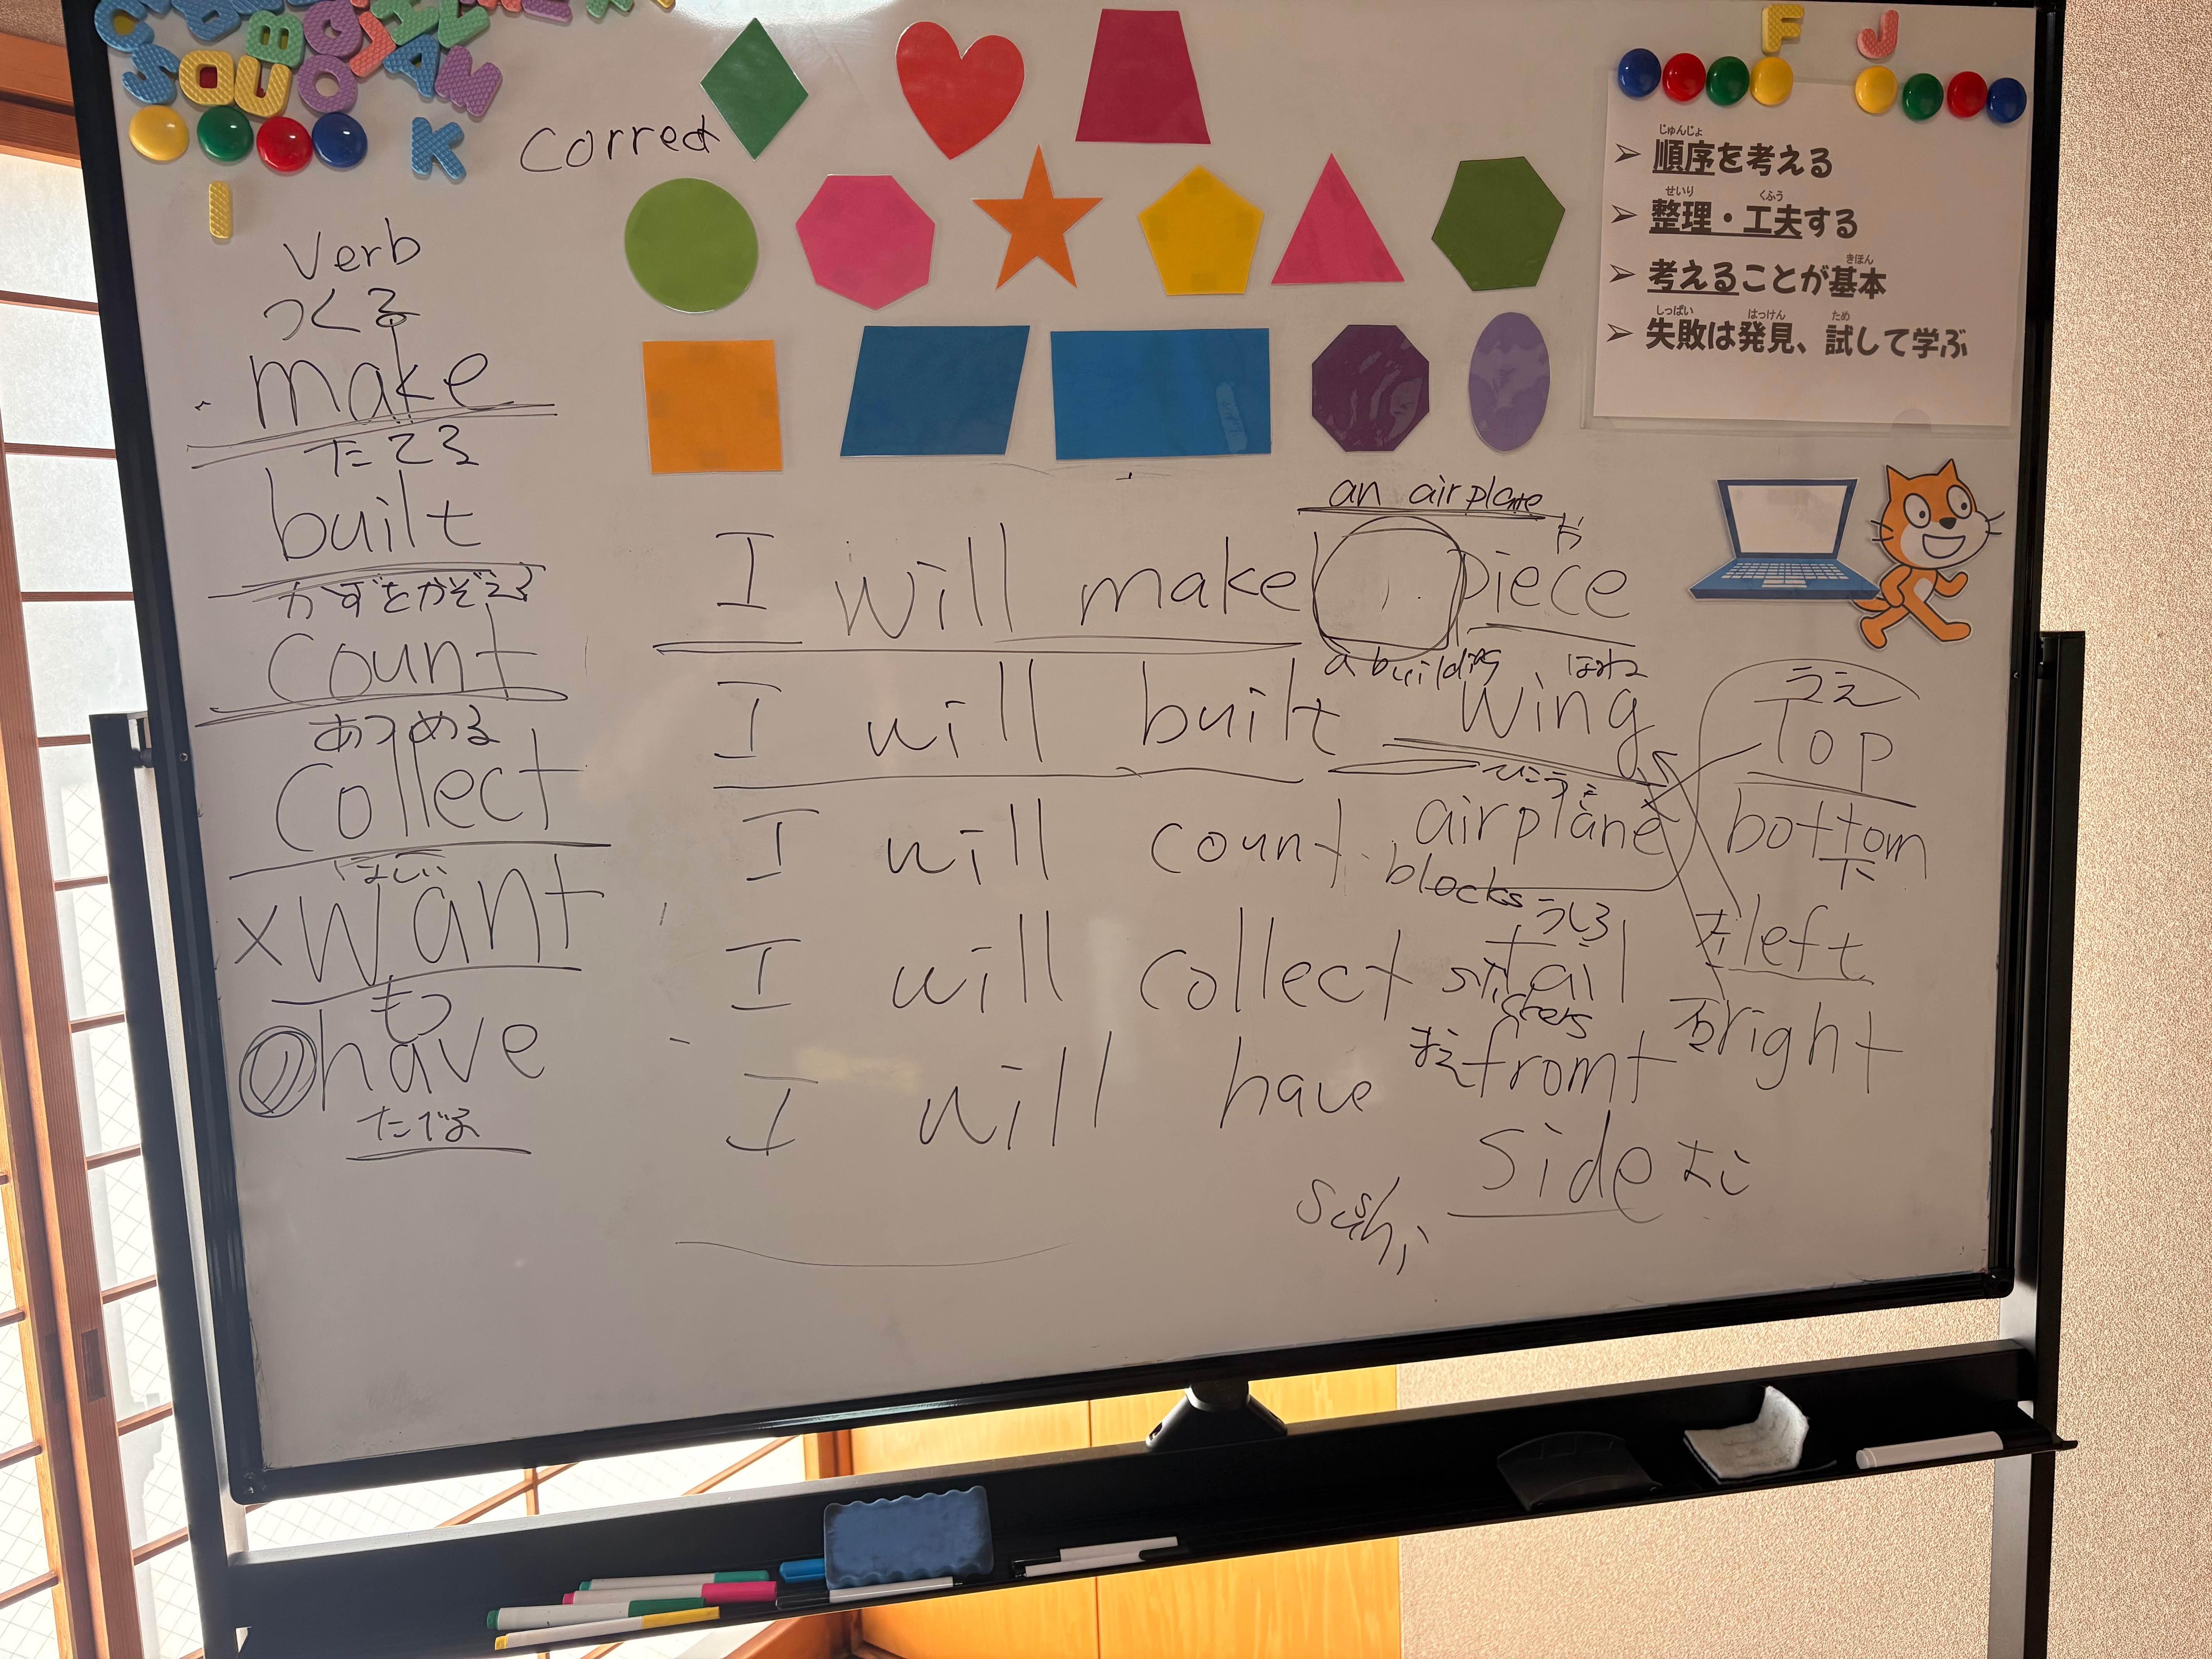 F J
K
I
correct
順序を考える
整理・工夫する
考えることが基本
失敗は発見、試して学ぶ
verb
つくる
make
たてる
built
かずをかぞえる
count
あつめる
collect
ほしい
×want
もつ
have
たべる
an airplane
I will make piece
a building はね
I will built wing
ひこうき
I will count airplane
blocks うしろ
I will collect tail
stickers
I will have まえ fromt
side よこ
sushi
うえ
Top
bottom
下
左 left
右 right